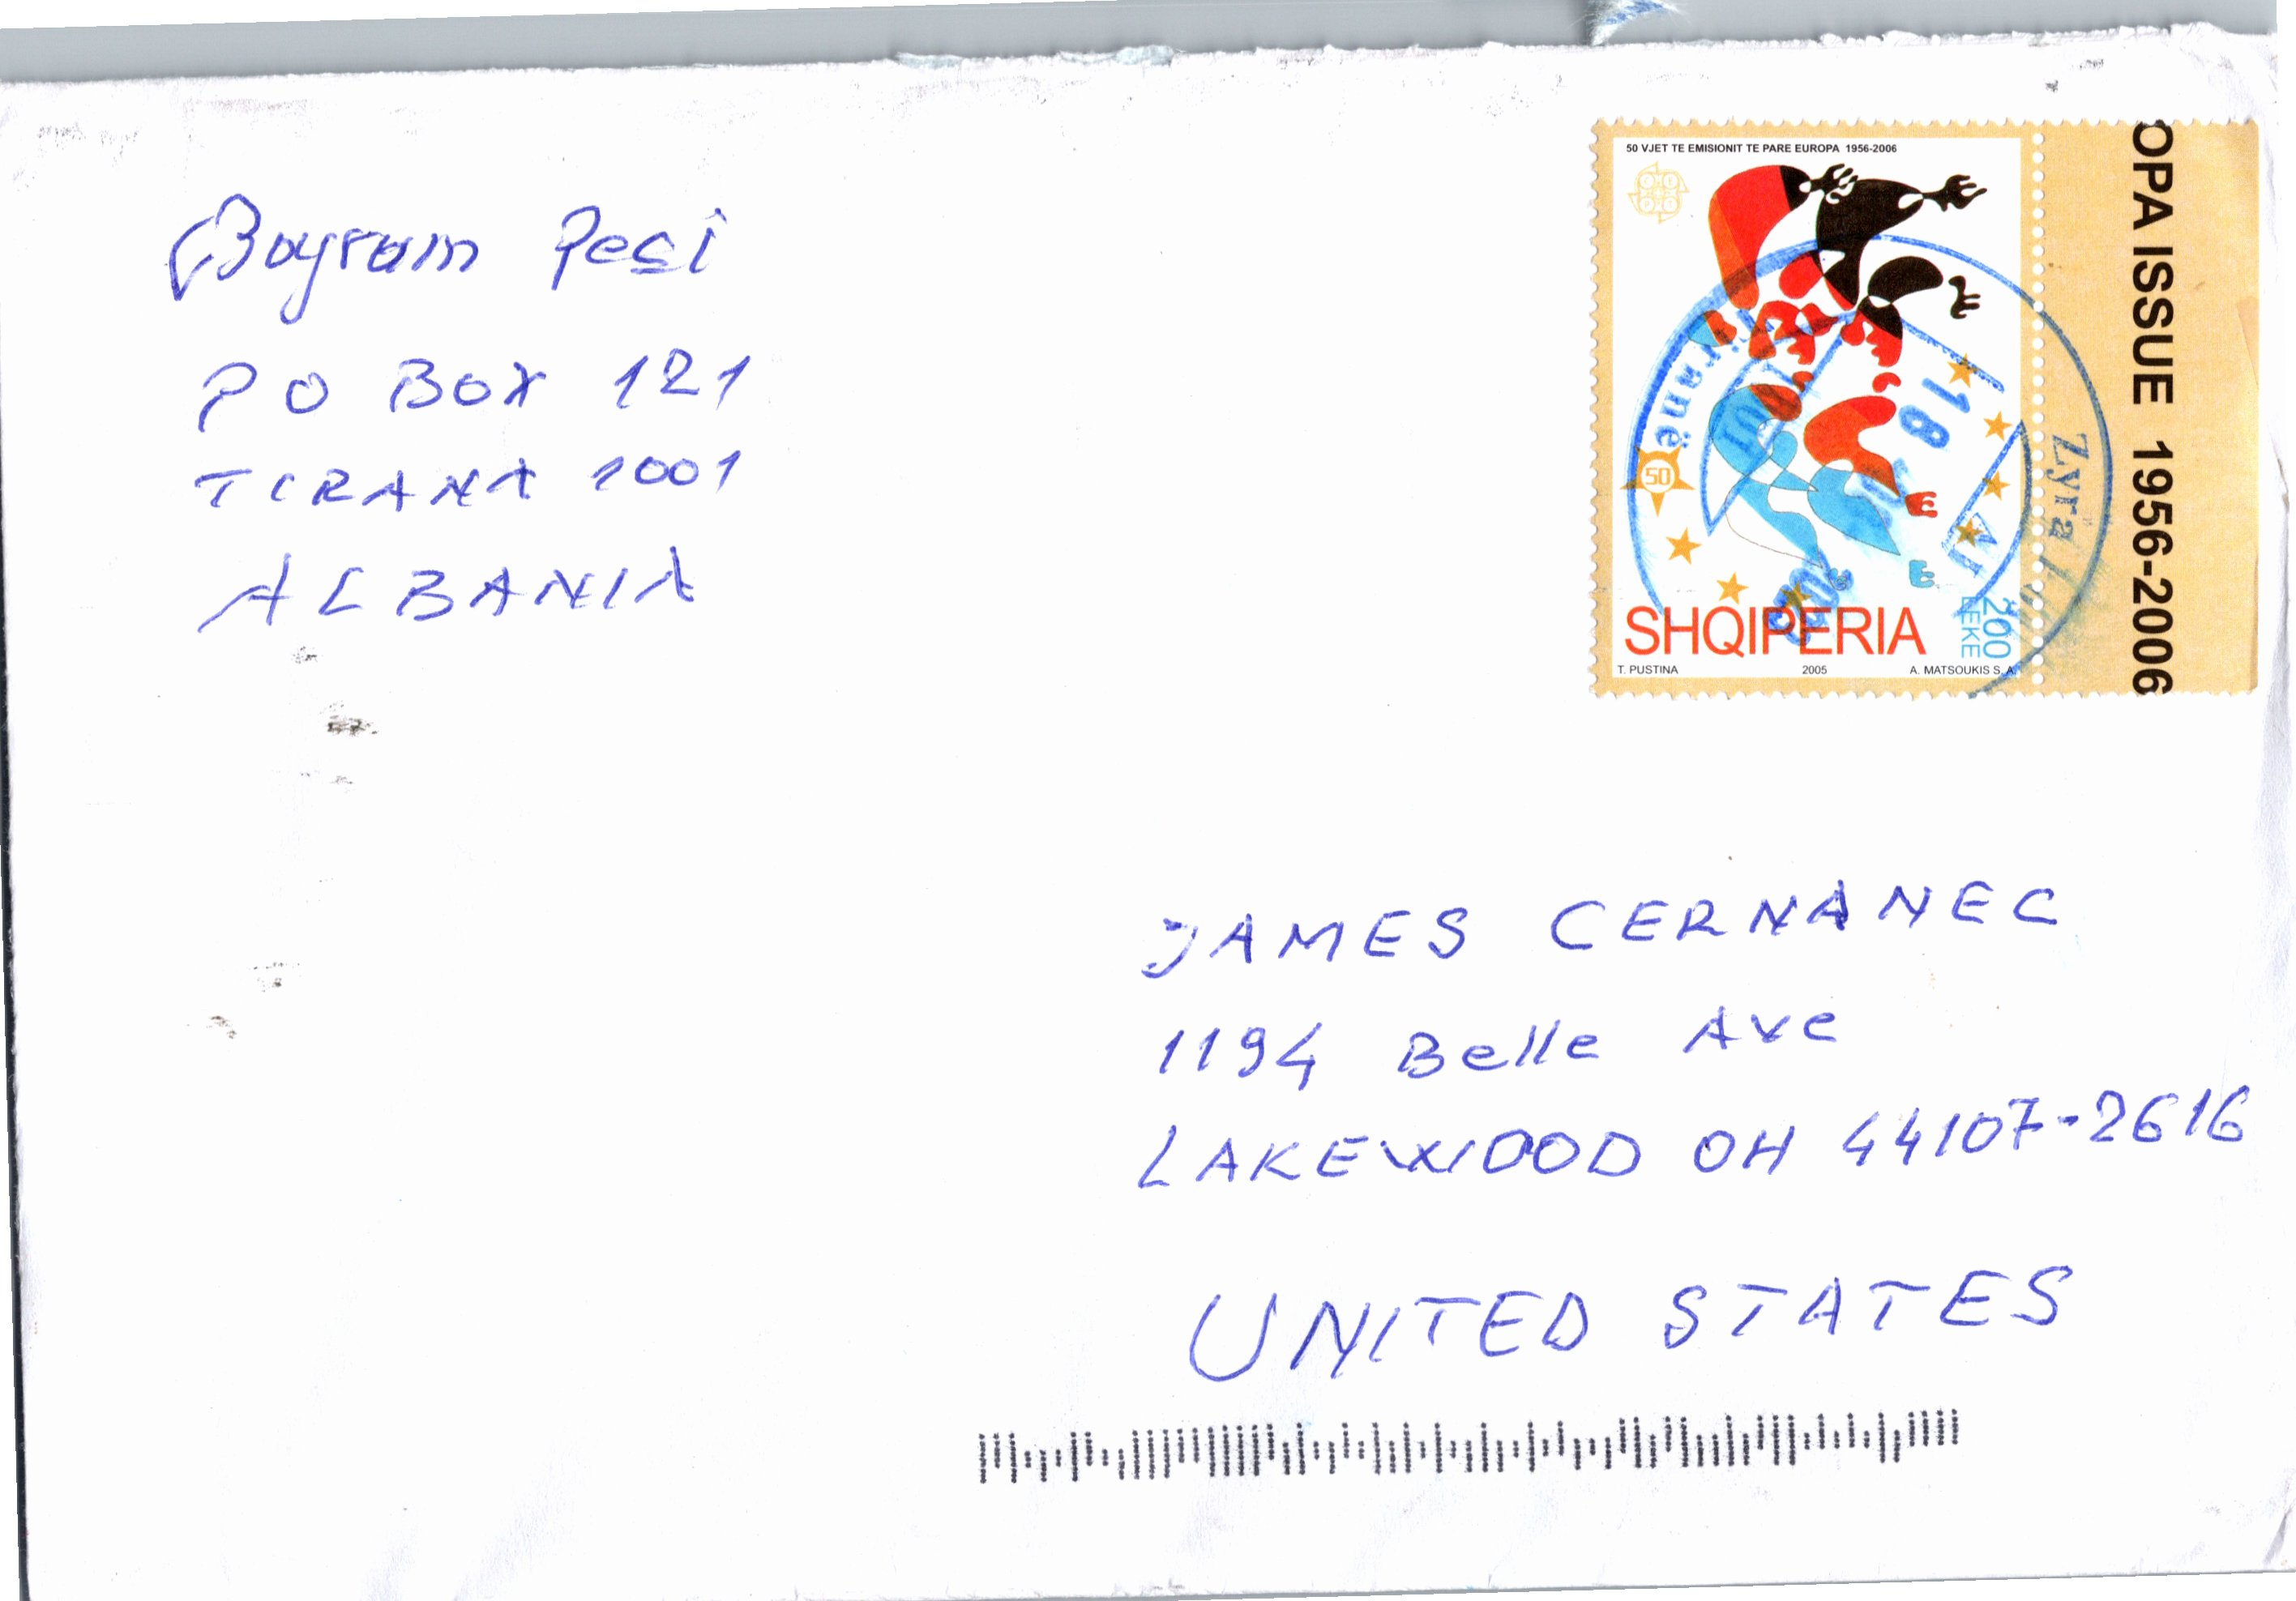 Bayram Peçi
PO BOX 121
TIRANA 1001
ALBANIA
50 VJET TE EMISIONIT TE PARE EUROPA 1956-2006
50
SHQIPERIA
200
LEKE
T. PUSTINA 2005 A. MATSOUKIS S. A.
OPA ISSUE 1956-2006
Tiranë
18
Zyra
JAMES CERNANEC
1194 Belle Ave
LAKEWOOD OH 44107-2616
UNITED STATES